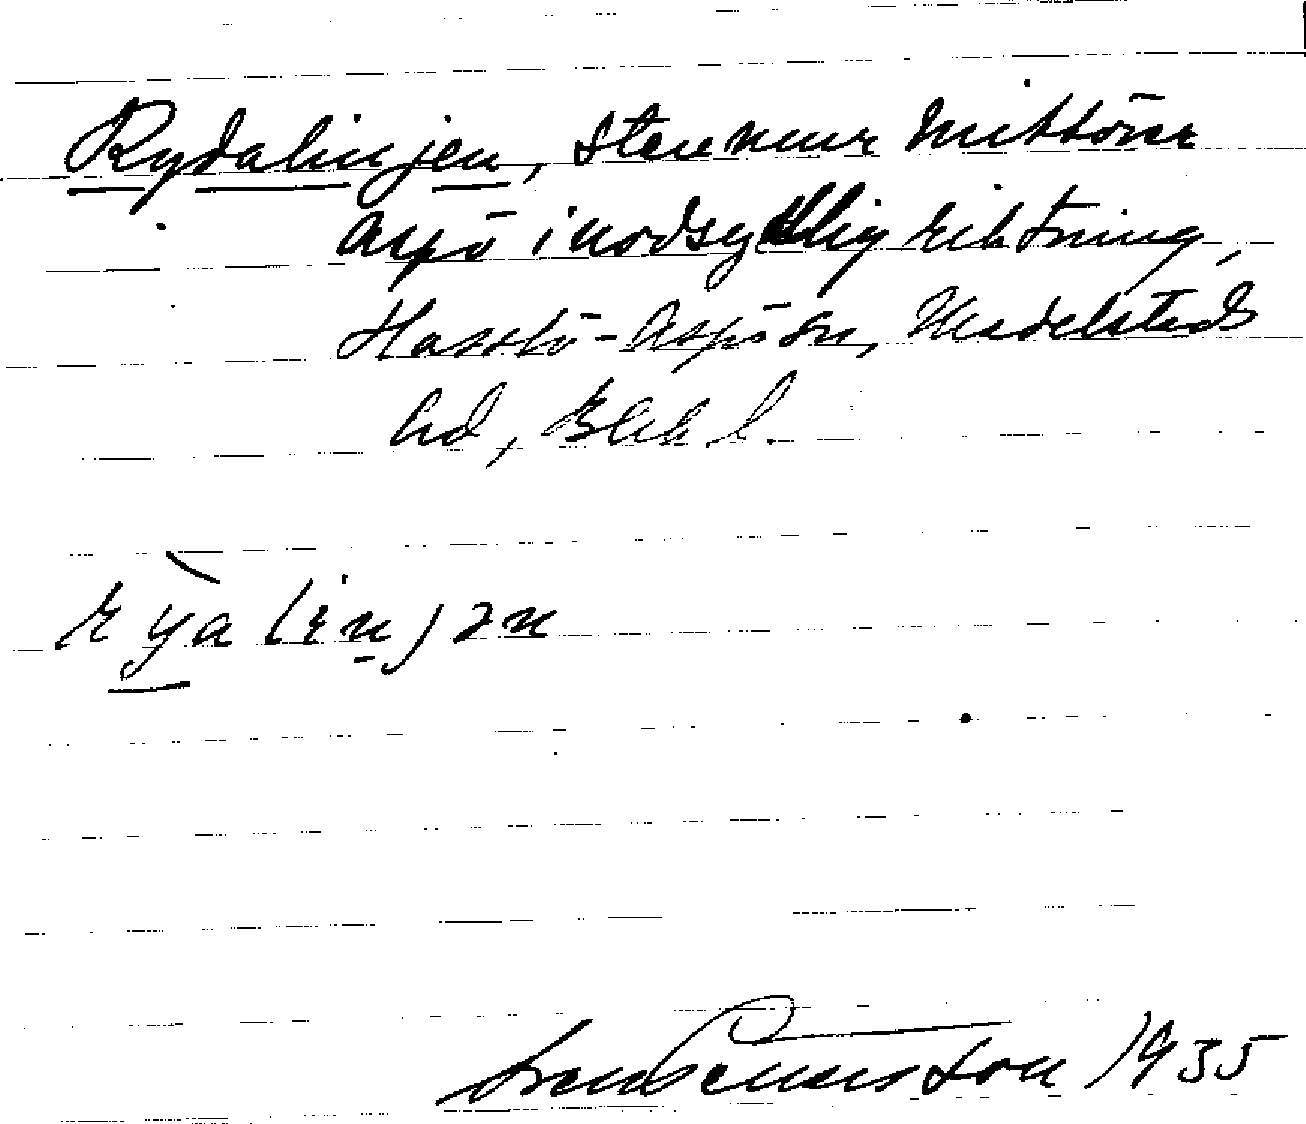 Rydalinjen, stenmur mitt över
Aspö i nordsydlig riktning,
Hasslö-Aspö sn, Medelsteds
hd, Blek l.
rỳa(in)ən
Sven Benson 1935